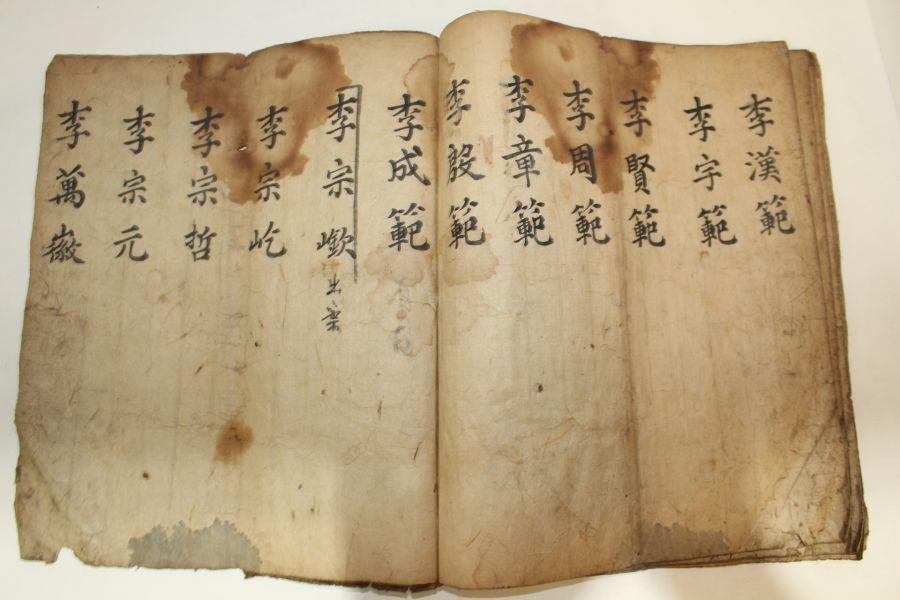 李漢範
李宇範
李賢範
李周範
李章範
李殷範
李成範
李宗㰸
出案
李宗屹
李宗哲
李宗元
李萬徽